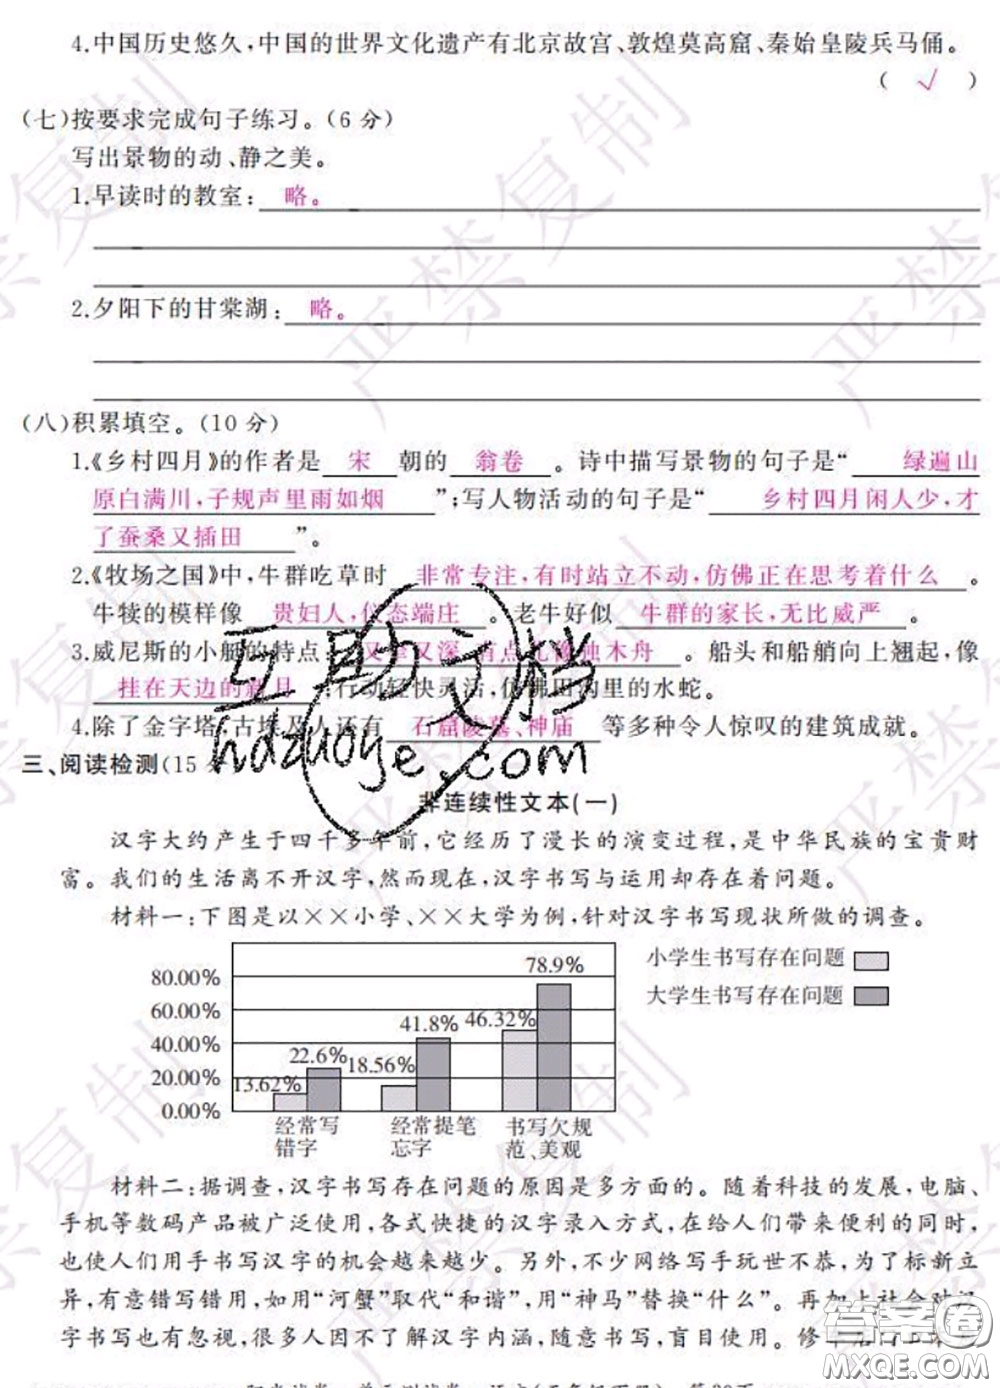 4.中国历史悠久,中国的世界文化遗产有北京故宫、敦煌莫高窟、秦始皇陵兵马俑。
( √ )
(七)按要求完成句子练习。(6 分)
写出景物的动、静之美。
1.早读时的教室: 略。
2.夕阳下的甘棠湖: 略。
(八)积累填空。(10 分)
1.《乡村四月》的作者是 宋 朝的 翁卷 。诗中描写景物的句子是“ 绿遍山
原白满川,子规声里雨如烟 ”;写人物活动的句子是“ 乡村四月闲人少,才
了蚕桑又插田 ”。
2.《牧场之国》中,牛群吃草时 非常专注,有时站立不动,仿佛正在思考着什么 。
牛犊的模样像 贵妇人,仪态端庄 。老牛好似 牛群的家长,无比威严 。
3.威尼斯的小艇的特点 又窄又深,有点儿像独木舟 。船头和船艄向上翘起,像
挂在天边的新月 ;行动轻快灵活,仿佛田沟里的水蛇。
4.除了金字塔,古埃及人还有 石窟陵墓、神庙 等多种令人惊叹的建筑成就。
三、阅读检测(15 分)
非连续性文本(一)
汉字大约产生于四千多年前,它经历了漫长的演变过程,是中华民族的宝贵财
富。我们的生活离不开汉字,然而现在,汉字书写与运用却存在着问题。
材料一:下图是以××小学、××大学为例,针对汉字书写现状所做的调查。
小学生书写存在问题
大学生书写存在问题
80.00%
60.00%
40.00%
20.00%
0.00%
13.62%
22.6%
18.56%
41.8%
46.32%
78.9%
经常写
错字
经常提笔
忘字
书写欠规
范、美观
材料二:据调查,汉字书写存在问题的原因是多方面的。随着科技的发展,电脑、
手机等数码产品被广泛使用,各式快捷的汉字录入方式,在给人们带来便利的同时,
也使人们用手书写汉字的机会越来越少。另外,不少网络写手玩世不恭,为了标新立
异,有意错写错用,如用“河蟹”取代“和谐”,用“神马”替换“什么”。再加上社会对汉
字书写也有忽视,很多人因不了解汉字内涵,随意书写,盲目使用。
互助文档
hdzuoye.com
严禁复制
答案圈
MXQE.COM